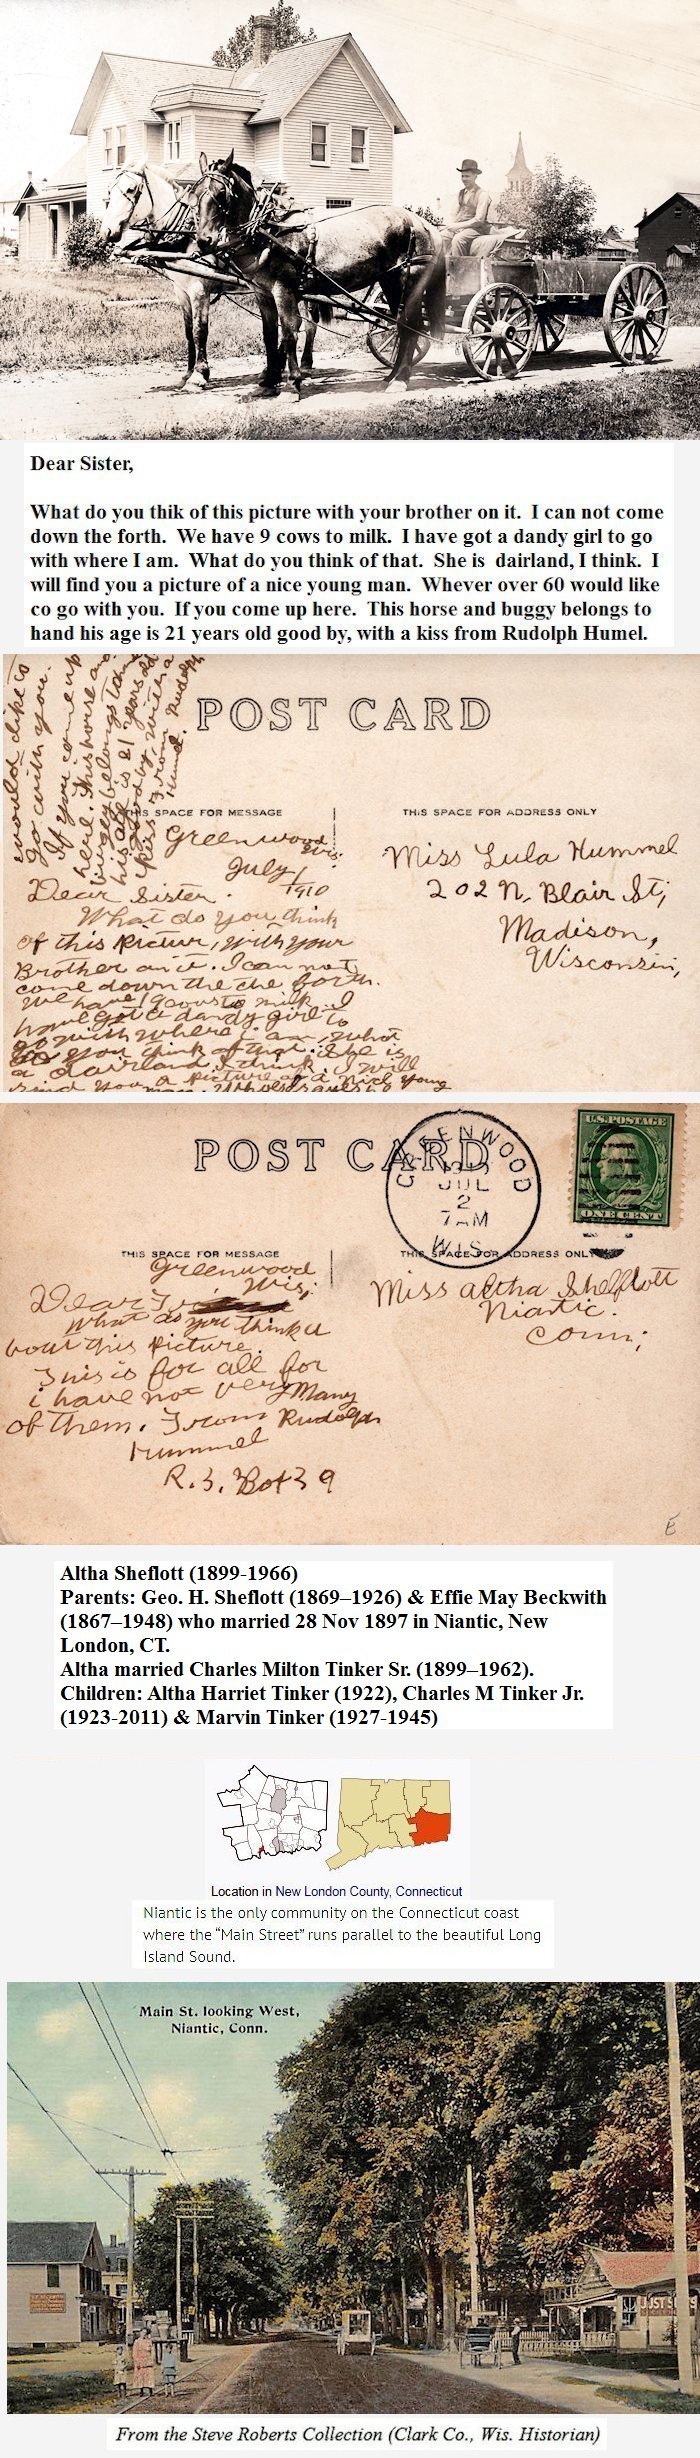 Dear Sister,
What do you thik of this picture with your brother on it. I can not come
down the forth. We have 9 cows to milk. I have got a dandy girl to go
with where I am. What do you think of that. She is dairland, I think. I
will find you a picture of a nice young man. Whever over 60 would like
co go with you. If you come up here. This horse and buggy belongs to
hand his age is 21 years old good by, with a kiss from Rudolph Humel.
would like to
go with you.
If you come up
here. This horse and
buggy belongs to
his age is 21 years old
good by, with a
kiss from Rudolph
Humel.
POST CARD
THIS SPACE FOR MESSAGE
THIS SPACE FOR ADDRESS ONLY
Greenwood
Wis.
July 1
1910
Dear Sister.
What do you think
of this Picture, with your
Brother on it. I can not
come down the the forth.
We have 9 cows to milk. I
have got a dandy girl to
go with where i am, what
do you think of that. She is
a dairland, I think. I will
send you a picture of a nice young
man.
Miss Lula Hummel
202 N. Blair St;
Madison,
Wisconsin,
POST CARD
GREENWOOD
JUL
2
7 AM
WIS.
U.S. POSTAGE
ONE CENT
THIS SPACE FOR MESSAGE
THIS SPACE FOR ADDRESS ONLY
Greenwood
Wis;
Dear
What do you think a
bout this picture.
This is for all for
i have not very Many
of them. From Rudolph
Hummel
R.3. Box 39
Miss Altha Sheflott
Niantic.
Conn;
E
Altha Sheflott (1899-1966)
Parents: Geo. H. Sheflott (1869–1926) & Effie May Beckwith
(1867–1948) who married 28 Nov 1897 in Niantic, New
London, CT.
Altha married Charles Milton Tinker Sr. (1899–1962).
Children: Altha Harriet Tinker (1922), Charles M Tinker Jr.
(1923-2011) & Marvin Tinker (1927-1945)
Location in New London County, Connecticut
Niantic is the only community on the Connecticut coast
where the “Main Street” runs parallel to the beautiful Long
Island Sound.
Main St. looking West,
Niantic, Conn.
From the Steve Roberts Collection (Clark Co., Wis. Historian)